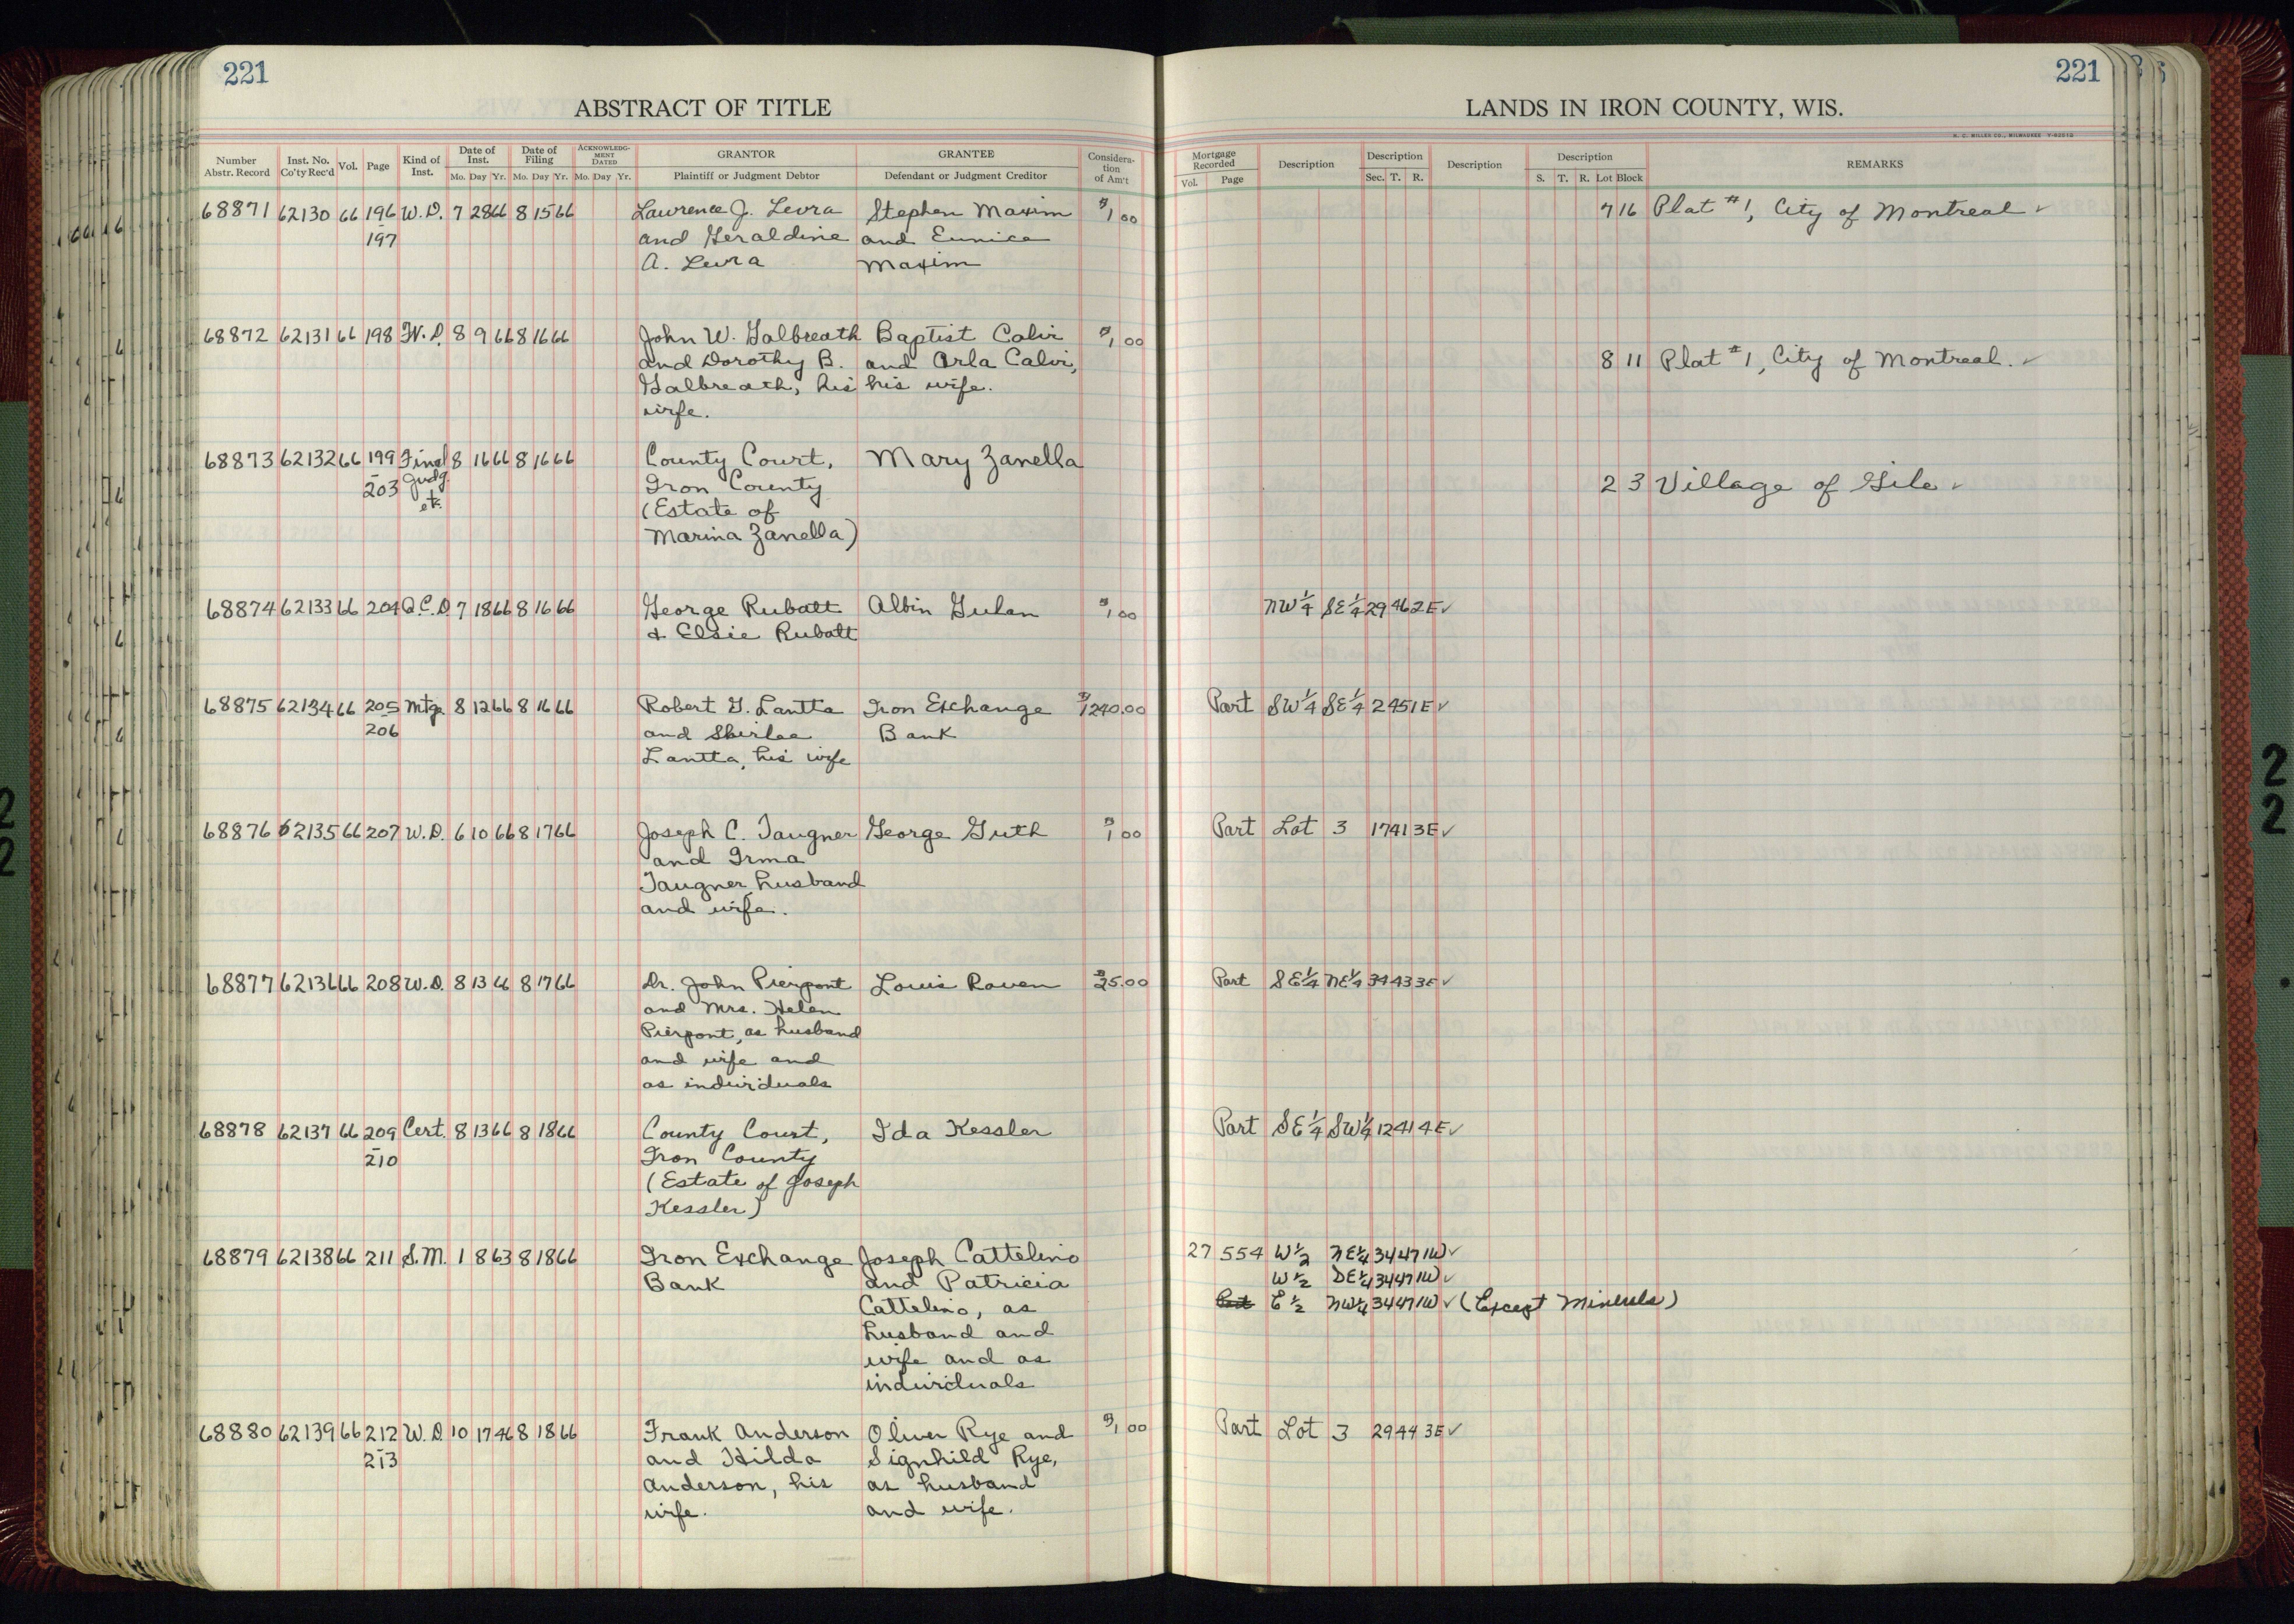 221
ABSTRACT OF TITLE
Number Abstr. Record Inst. No. Co'ty Rec'd Vol. Page Kind of Inst. Date of Inst. Mo. Day Yr. Date of Filing Mo. Day Yr. ACKNOWLEDGMENT DATED Mo. Day Yr. GRANTOR Plaintiff or Judgment Debtor GRANTEE Defendant or Judgment Creditor Consideration of Am't
221
LANDS IN IRON COUNTY, WIS.
H. C. MILLER CO., MILWAUKEE
Mortgage Recorded Vol. Page Description Description Sec. T. R. Description Description S. T. R. Lot Block REMARKS
68871 62130 66 196 W.D. 7 28 66 8 15 66 Lawrence J. Levra Stephen Maxim $1 00 7 16 Plat #1, City of Montreal ✓
- 197 and Geraldine and Eunice
A. Levra Maxim
68872 62131 66 198 W.D. 8 9 66 8 16 66 John W. Galbreath Baptist Calvi $1 00
and Dorothy B. and Orla Calvi, 8 11 Plat #1, City of Montreal. ✓
Galbreath, his his wife.
wife.
68873 62132 66 199 Final 8 16 66 8 16 66 County Court, Mary Zanella
- 203 Judg. Iron County 2 3 Village of Gile ✓
etc. (Estate of
Marina Zanella)
68874 62133 66 204 Q.C.D 7 18 66 8 16 66 George Rubatt Albin Gulan $1 00 NW 1/4 SE 1/4 29 46 2E ✓
& Elsie Rubatt
68875 62134 66 205 Mtg. 8 12 66 8 16 66 Robert G. Lantta Iron Exchange $1240.00 Part SW 1/4 SE 1/4 2 45 1E ✓
- 206 and Shirlee Bank
Lantta, his wife
68876 62135 66 207 W.D. 6 10 66 8 17 66 Joseph C. Taugner George Guth $1 00 Part Lot 3 17 41 3E ✓
and Irma
Taugner husband
and wife.
68877 62136 66 208 W.D. 8 13 66 8 17 66 Dr. John Pierpont Louis Raven $25.00 Part SE 1/4 NE 1/4 34 43 3E ✓
and Mrs. Helen
Pierpont, as husband
and wife and
as individuals
68878 62137 66 209 Cert. 8 13 66 8 18 66 County Court, Ida Kessler Part SE 1/4 SW 1/4 12 41 4E ✓
- 210 Iron County
(Estate of Joseph
Kessler)
68879 62138 66 211 S.M. 1 8 63 8 18 66 Iron Exchange Joseph Cattelino 27 554 W 1/2 NE 1/4 34 47 1W ✓
Bank and Patricia W 1/2 SE 1/4 34 47 1W ✓
Cattelino, as Part E 1/2 NW 1/4 34 47 1W ✓ (Except Minerals)
husband and
wife and as
individuals
68880 62139 66 212 W.D. 10 17 46 8 18 66 Frank Anderson Oliver Rye and $1 00 Part Lot 3 29 44 3E ✓
- 213 and Hilda Signhild Rye,
Anderson, his as husband
wife. and wife.